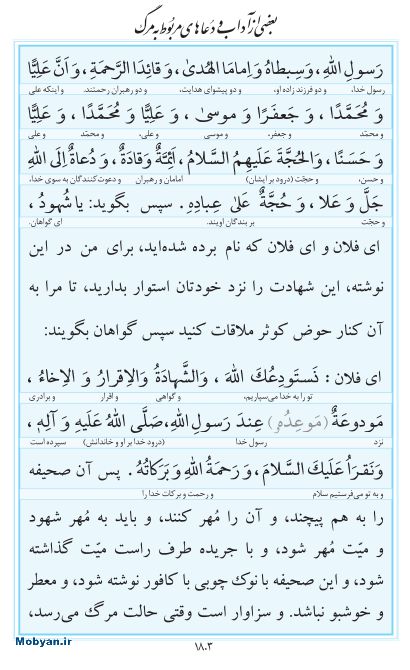 بعضی از آداب و دعاهای مربوط به مرگ
رَسولِ اللهِ، وَسِبطاهُ وَاِمامَا الهُدیٰ، وَقائِدَا الرَّحمَةِ، وَاَنَّ عَلِیًّا
رسول خدا، و دو فرزند زاده او، و دو پیشوای هدایت، و دو رهبران رحمتند. و اینکه علی
وَ مُحَمَّدًا ، وَ جَعفَرًا وَ موسیٰ ، وَ عَلِیًّا وَ مُحَمَّدًا ، وَ عَلِیًّا
و محمّد و جعفر، و موسی و علی، و محمّد و علی
وَ حَسَنًا ، وَالحُجَّةَ عَلَیهِمُ السَّلامُ، اَئِمَّةٌ وَقادَةٌ، وَ دُعاةٌ اِلَی اللهِ
و حسن، و حجّت (درود بر ایشان) امامان و رهبران و دعوت‌کنندگان به سوی خدا،
جَلَّ وَ عَلا ، وَ حُجَّةٌ عَلیٰ عِبادِهِ. سپس بگوید: یا شُهودُ ،
و حجّت بر بندگان اویند. ای گواهان.
ای فلان و ای فلان که نام برده شده‌اید، برای من در این
نوشته، این شهادت را نزد خودتان استوار بدارید، تا مرا به
آن کنار حوض کوثر ملاقات کنید سپس گواهان بگویند:
ای فلان : نَستَودِعُكَ اللهَ ، وَالشَّهادَةُ وَالاِقرارُ وَ الاِخاءُ ،
تو را به خدا می‌سپاریم، و گواهی و اقرار و برادری
مَودوعَةٌ (مَوعِدُهُم) عِندَ رَسولِ اللهِ، صَلَّی اللهُ عَلَیهِ وَ آلِهِ،
نزد رسول خدا (درود خدا بر او و خاندانش) سپرده است
وَنَقرَأُ عَلَیكَ السَّلامَ، وَ رَحمَةُ اللهِ وَ بَرَکاتُهُ. پس آن صحیفه
و به تو می‌فرستیم سلام و رحمت و برکات خدا را
را به هم پیچند، و آن را مُهر کنند، و باید به مُهر شهود
و میّت مُهر شود، و با جریده طرف راست میّت گذاشته
شود، و این صحیفه با نوک چوبی با کافور نوشته شود، و معطر
و خوشبو نباشد. و سزاوار است وقتی حالت مرگ می‌رسد،
Mobyan.ir
۱۸۰۳